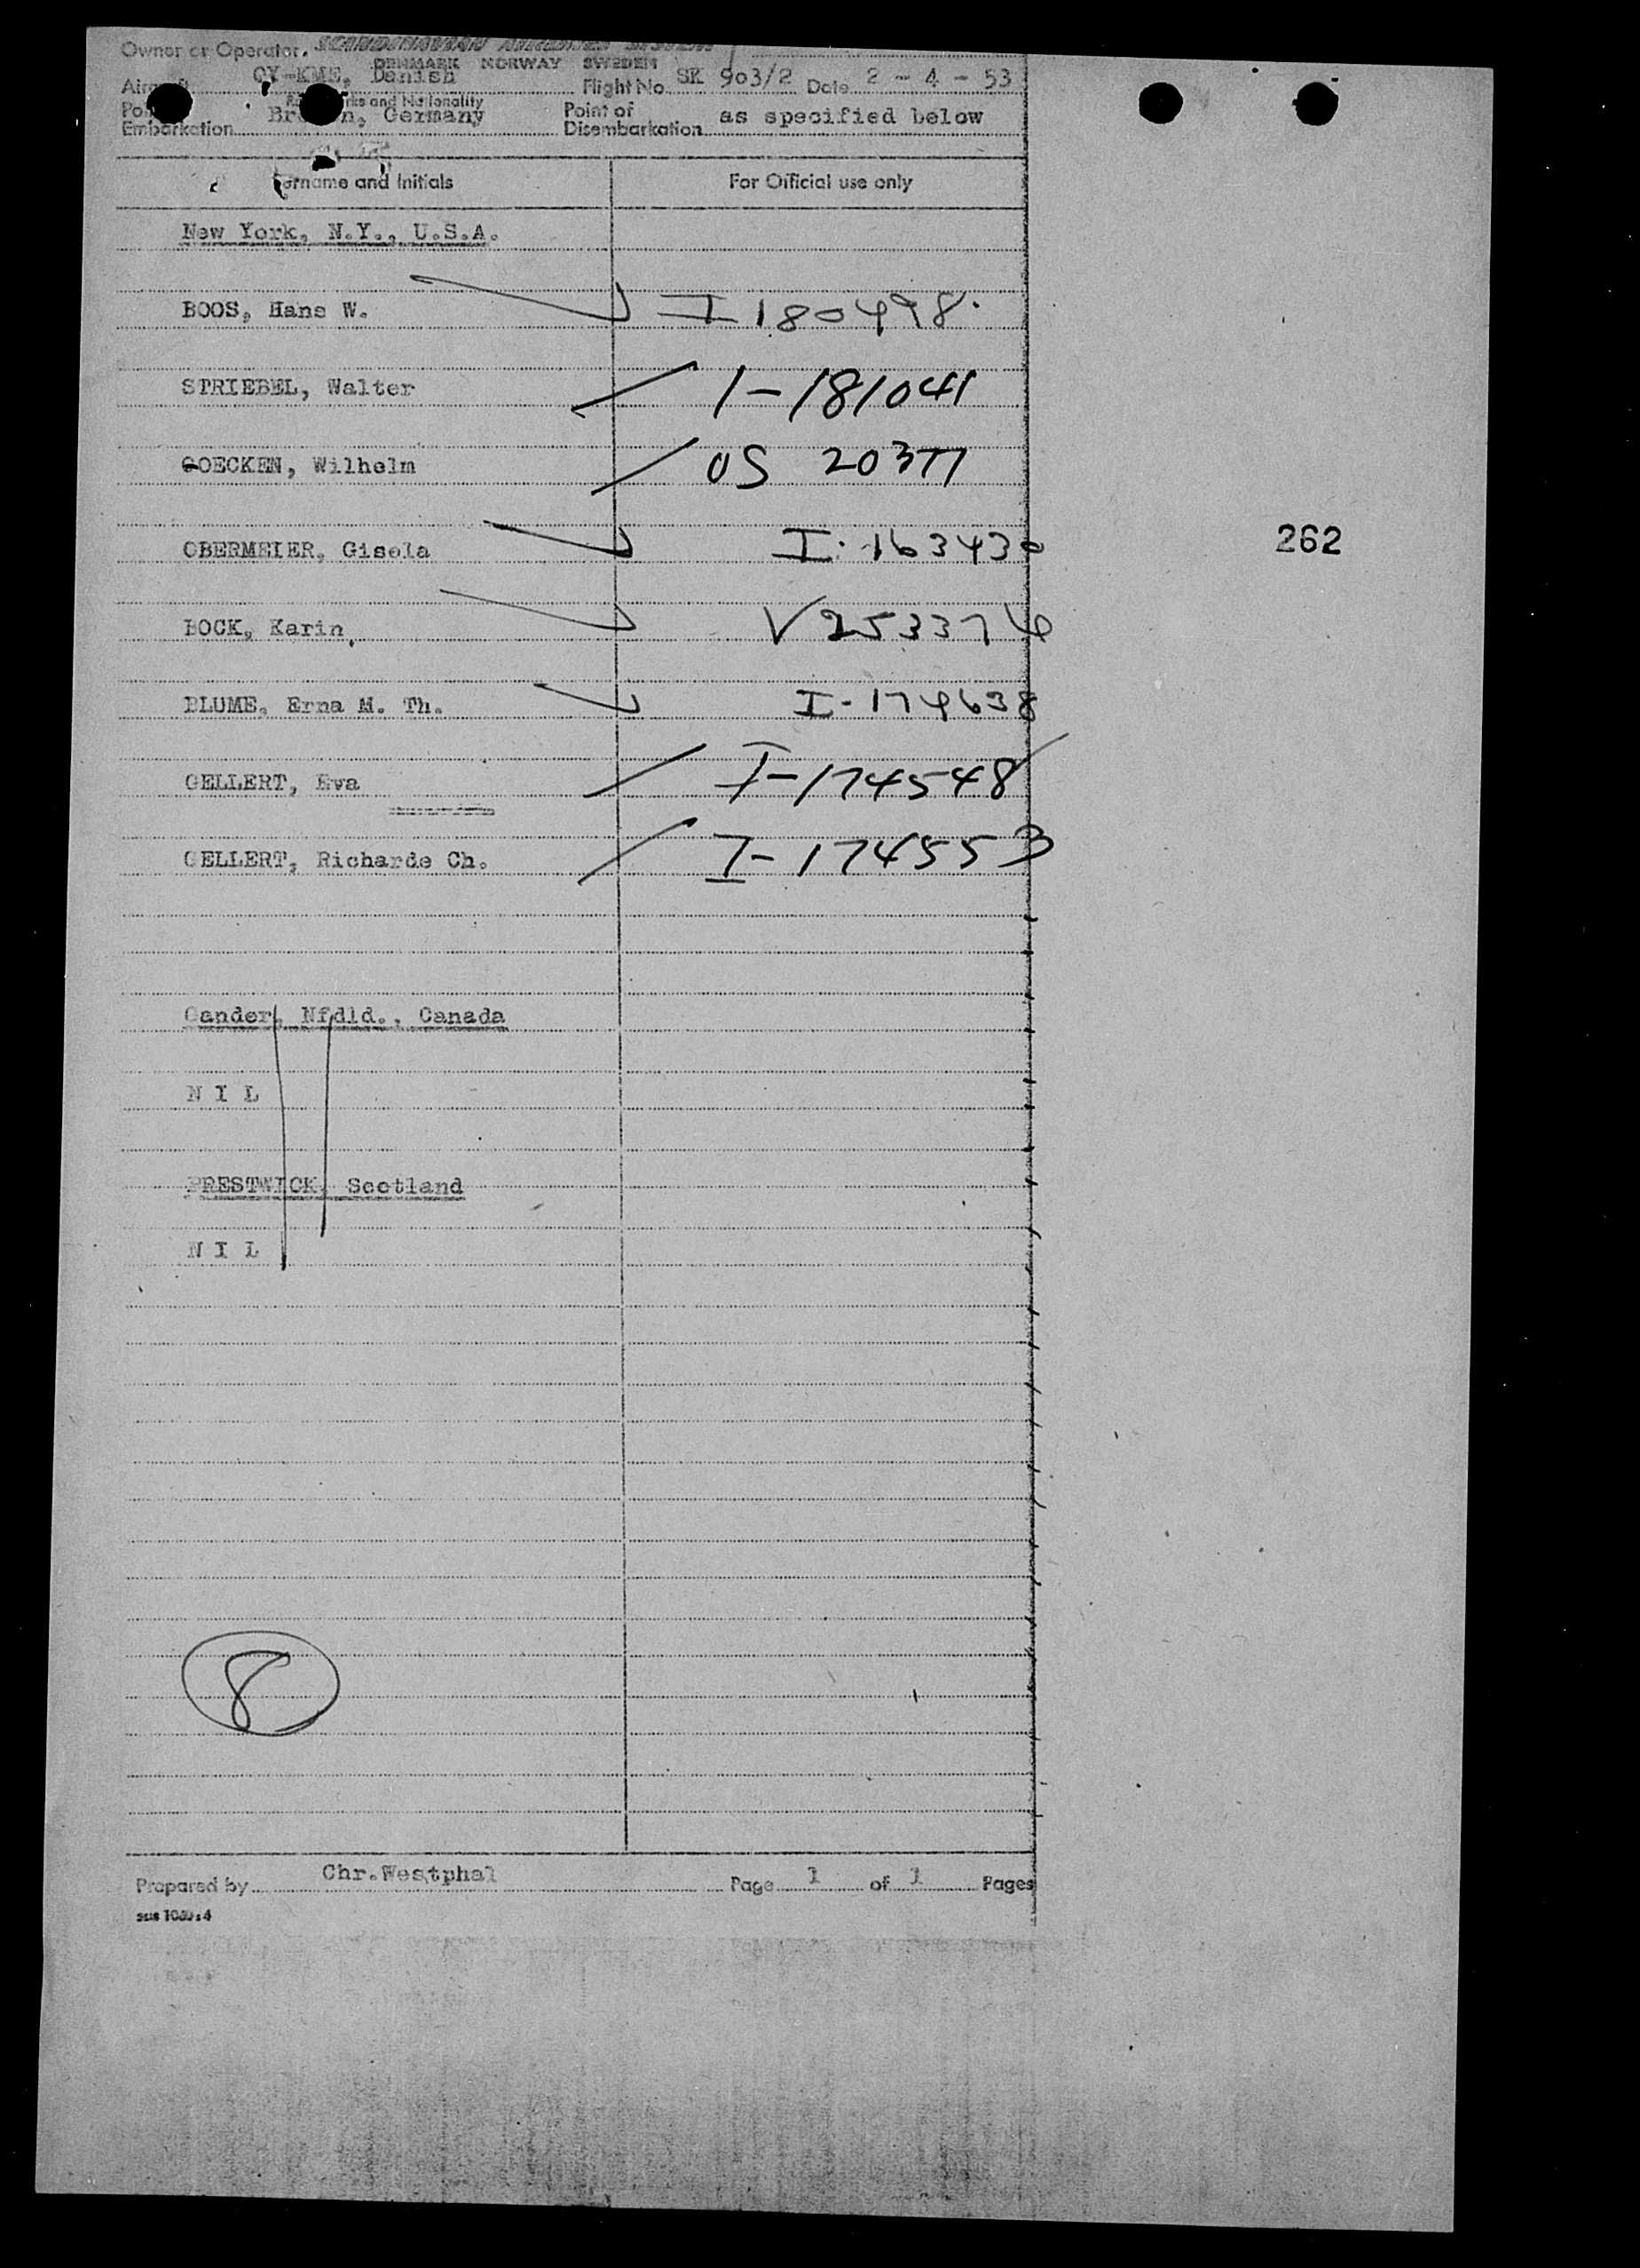 Owner or Operator. SCANDINAVIAN AIRLINES SYSTEM
DENMARK NORWAY SWEDEN
OY-KME, Danish Flight No. SK 903/2 Date 2 - 4 - 53
rks and Nationality
Br n, Germany Point of
Embarkation Disembarkation as specified below
rname and Initials For Official use only
New York, N.Y., U.S.A.
BOOS, Hans W. I 180498.
STRIEBEL, Walter 1-181041
GOECKEN, Wilhelm OS 20377
OBERMEIER, Gisela I-163430
262
BOCK, Karin V253374
BLUME, Erna M. Th. I-174638
GELLERT, Eva I-174548
GELLERT, Richarde Ch. I-174553
Gander, Nfdld., Canada
N I L
PRESTWICK, Scotland
N I L
8
Prepared by Chr.Westphal Page 1 of 1 Pages